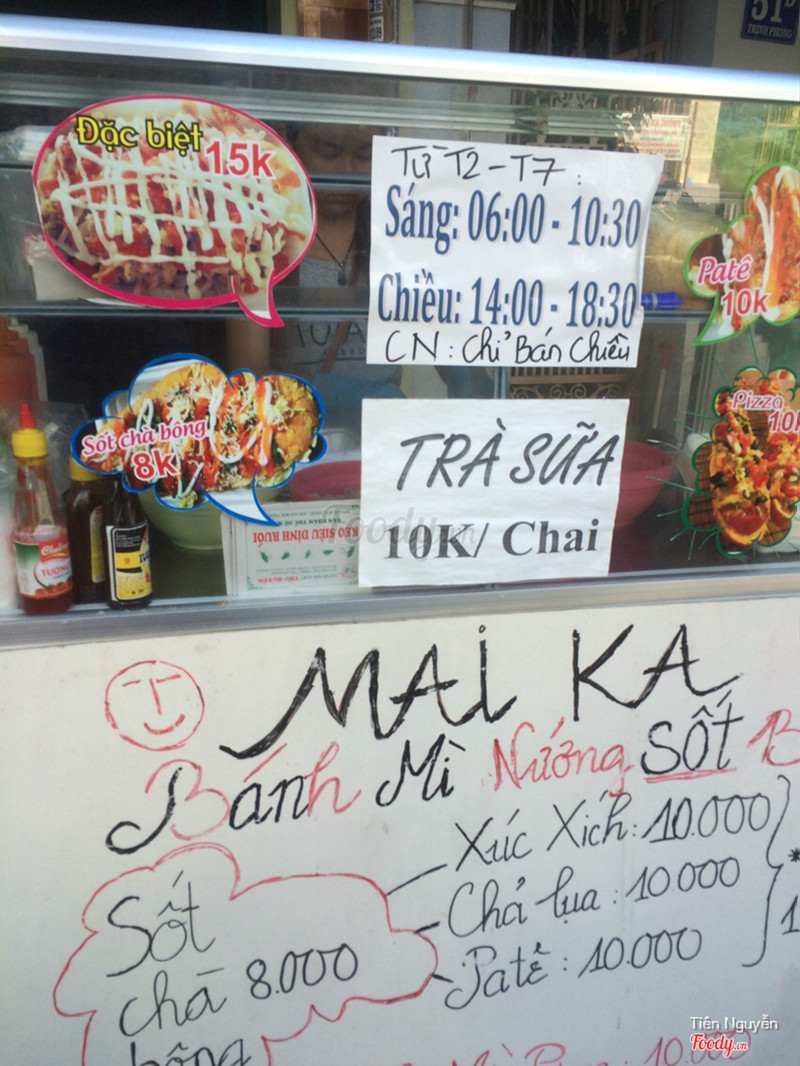 51D
TRỊNH PHONG
Đặc biệt
15k
Từ T2-T7:
Sáng: 06:00 - 10:30
Chiều: 14:00 - 18:30
CN: Chỉ Bán Chiều
Patê
10k
Sốt chà bông
8k
Pizza
10k
TRÀ SỮA
10K/ Chai
KEO SIÊU DÍNH RUỒI
Foody.vn
MAI KA
Bánh Mì Nướng Sốt B
Xúc Xích: 10.000
Chả lụa: 10.000
Patê: 10.000
Sốt
chà 8.000
bông
10.000
Tiên Nguyễn
Foody.vn